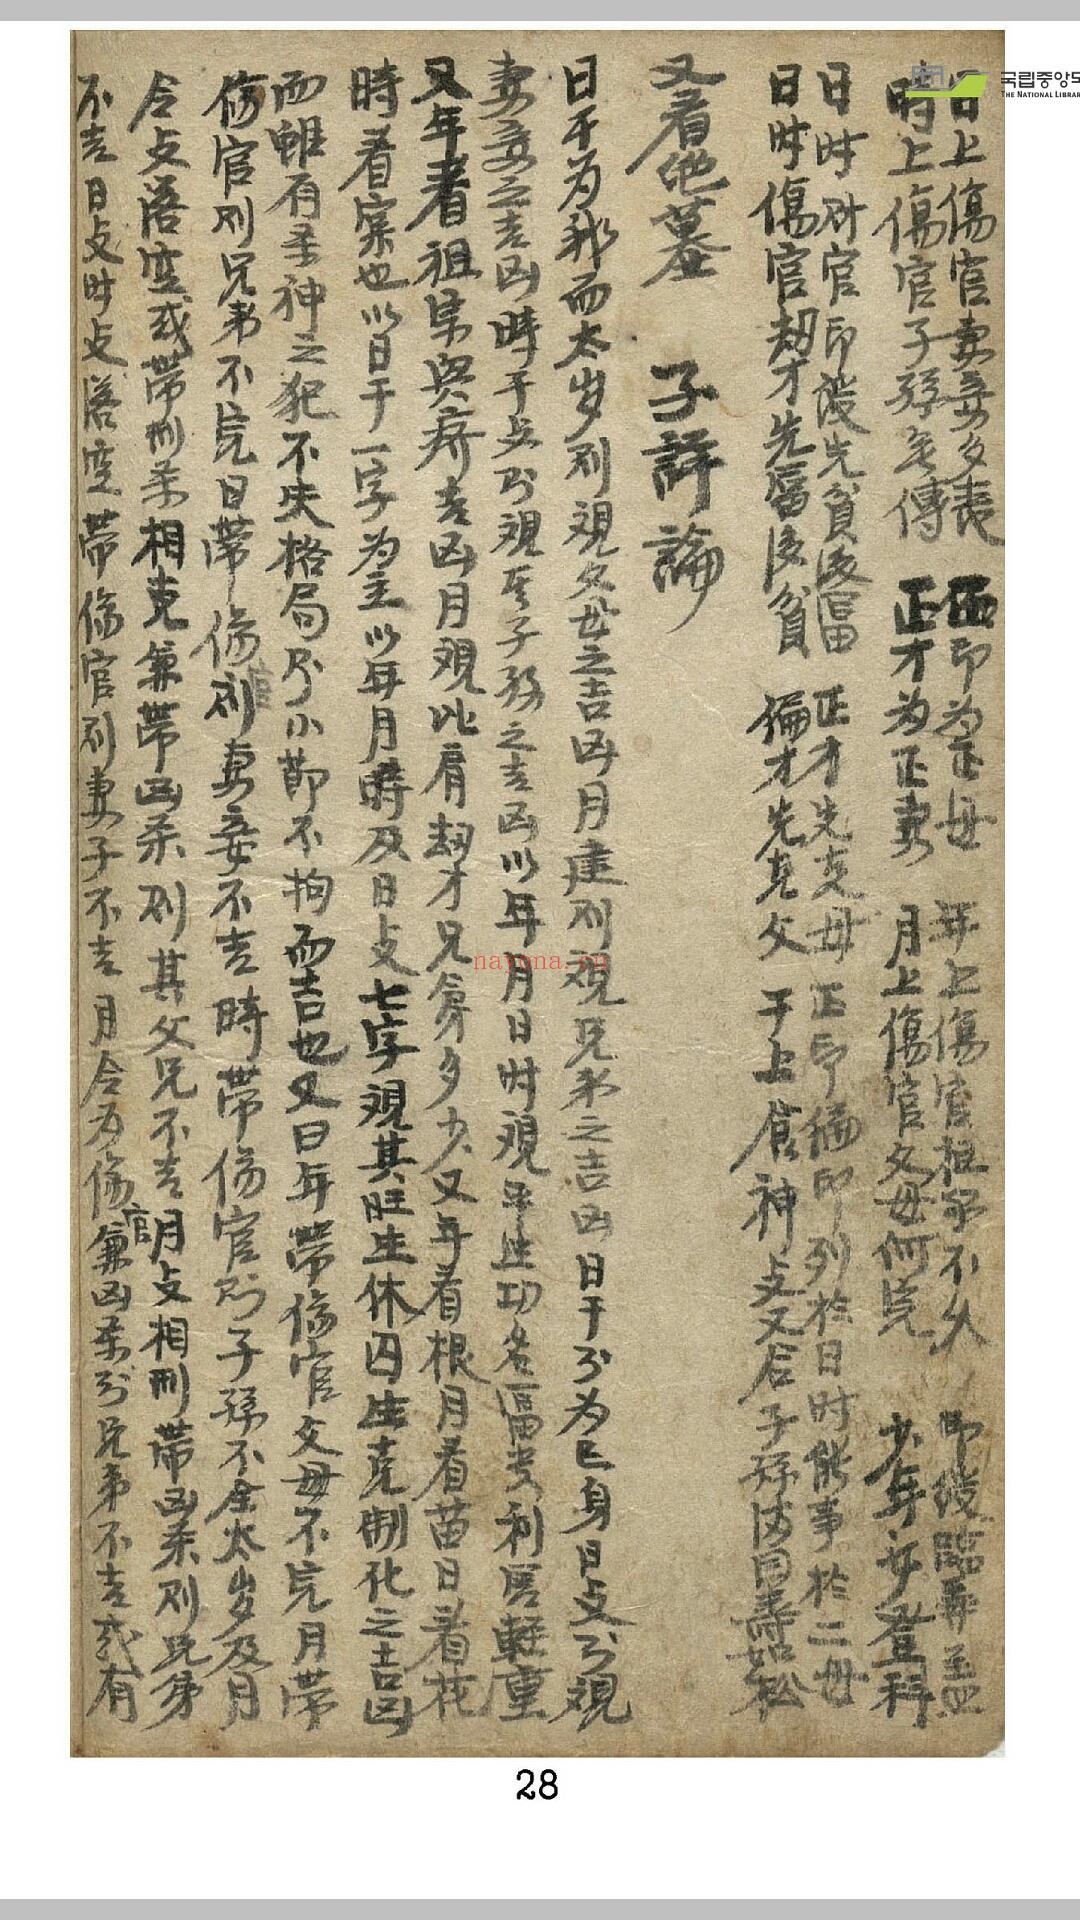 日上傷官妻妾多喪 正印為正母 年上傷官祖宗不久
時上傷官子孫無傳 正才為正妻 月上傷官父母何完 少年女登科
日时財官印綬先貧後富 正才先克母 正印偏印列於日时能事於二母
日时傷官劫才先富後貧 偏才先克父 干上食神支又合子孫满目壽如松
又看絶墓 子評論
日干为我而太岁則視父母之吉凶月建則視兄弟之吉凶日干則为己身日支則視
妻妾之吉凶時干支則視其子孫之吉凶以年月日时視平生功名富贵利害輕重
又年看祖宗興廢吉凶月觀比肩劫才兄弟多少又年看根月看苗日看花
時看案也以日干一字为主以年月時及日支七字視其旺生休囚生克制化之吉凶
而雖有杀神之犯不失格局則小節不拘而吉也又曰年帶傷官父母不完月帶
傷官則兄弟不完日帶傷官則妻妾不吉時帶傷官則子孫不全太岁及月
令支落空或帶刑杀相克兼帶凶杀則其父兄不吉月支相刑帶凶杀則兄弟
不吉日支时支落空帶傷官則妻子不吉月令为傷官兼凶杀則兄弟不吉或有
국립중앙도
THE NATIONAL LIBRAR
nayona.cn
28